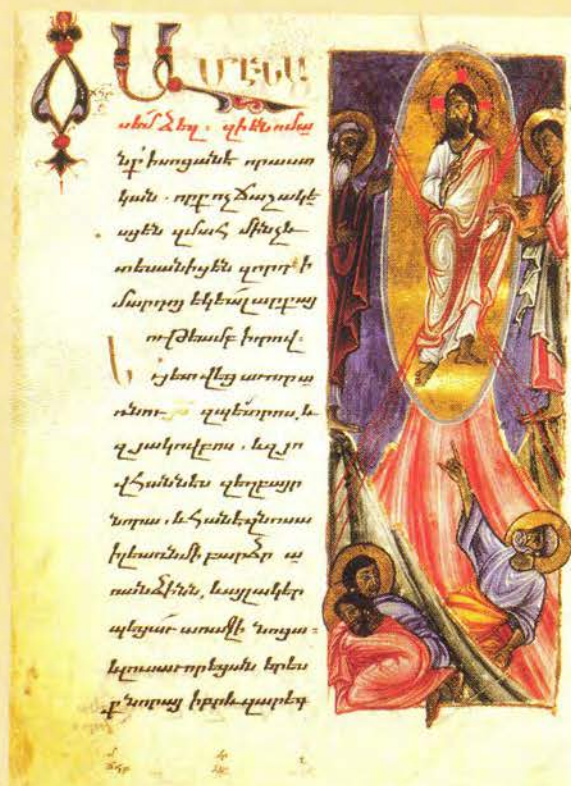 Ամէն ա
սեմ ձեզ. զի են ոմա
նք ի սոցանէ որ աստ
կան. որք ոչ ճաշակէ
սցեն զմահ մինչև
տեսանիցեն զորդի
մարդոյ եկեալ արքայ
ութեամբ իւրով։
Եւ յետ վեց աւուր ա
ռնու զպետրոս. և
զյակովբոս. և զյո
վհաննես զեղբայր
նորա. և հանէ զնոսա
ի լեառն մի բարձր ա
ռանձինն. և այլակեր
պեցաւ առաջի նոցա։
և լուսաւորեցան երես
ք նորա իբրև զարեգ